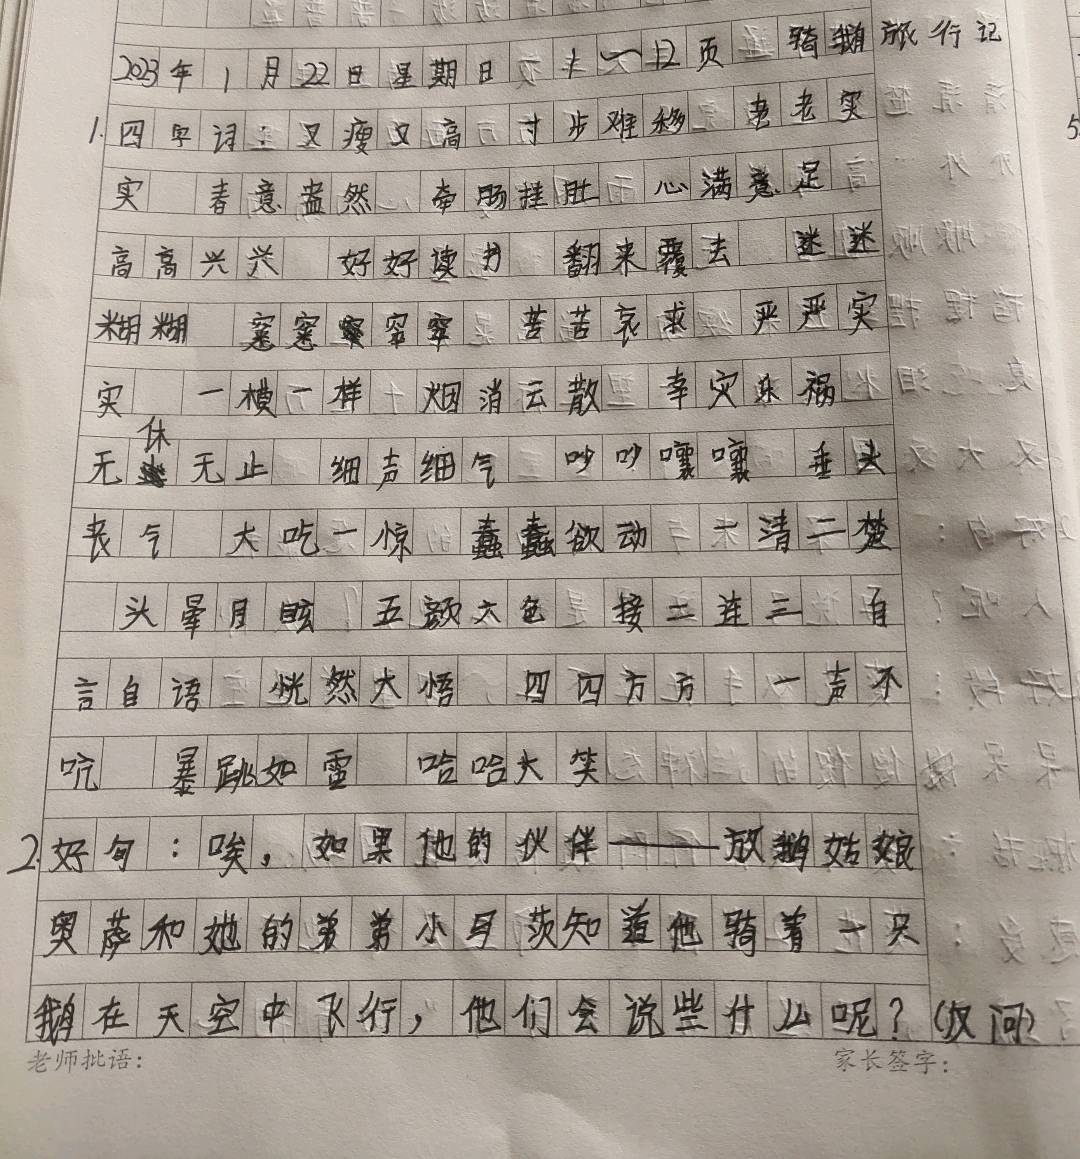 2023年1月22日星期日 12页 骑鹅旅行记
1.四字词：又瘦又高 寸步难移 老老实
实 春意盎然 牵肠挂肚 心满意足
高高兴兴 好好读书 翻来覆去 迷迷
糊糊 窸窸窣窣 苦苦哀求 严严实
实 一模一样 烟消云散 幸灾乐祸
无休无止 细声细气 吵吵嚷嚷 垂头
丧气 大吃一惊 蠢蠢欲动 一清二楚
头晕目眩 五颜六色 接二连三 自
言自语 恍然大悟 四四方方 一声不
吭 暴跳如雷 哈哈大笑
2.好句：唉，如果他的伙伴——放鹅姑娘
奥萨和她的弟弟小马茨知道他骑着一只
鹅在天空中飞行，他们会说些什么呢？(反问)
老师批语： 家长签字：